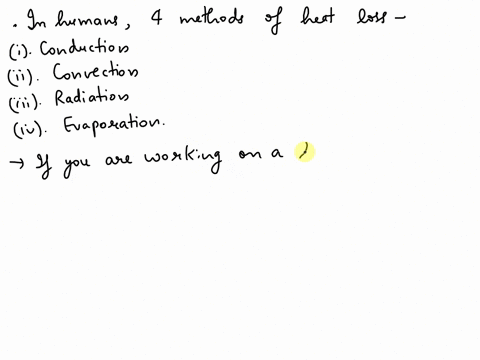 . In humans, 4 methods of heat loss -
(i). Conduction
(ii). Convection
(iii). Radiation
(iv). Evaporation.
→ If you are working on a